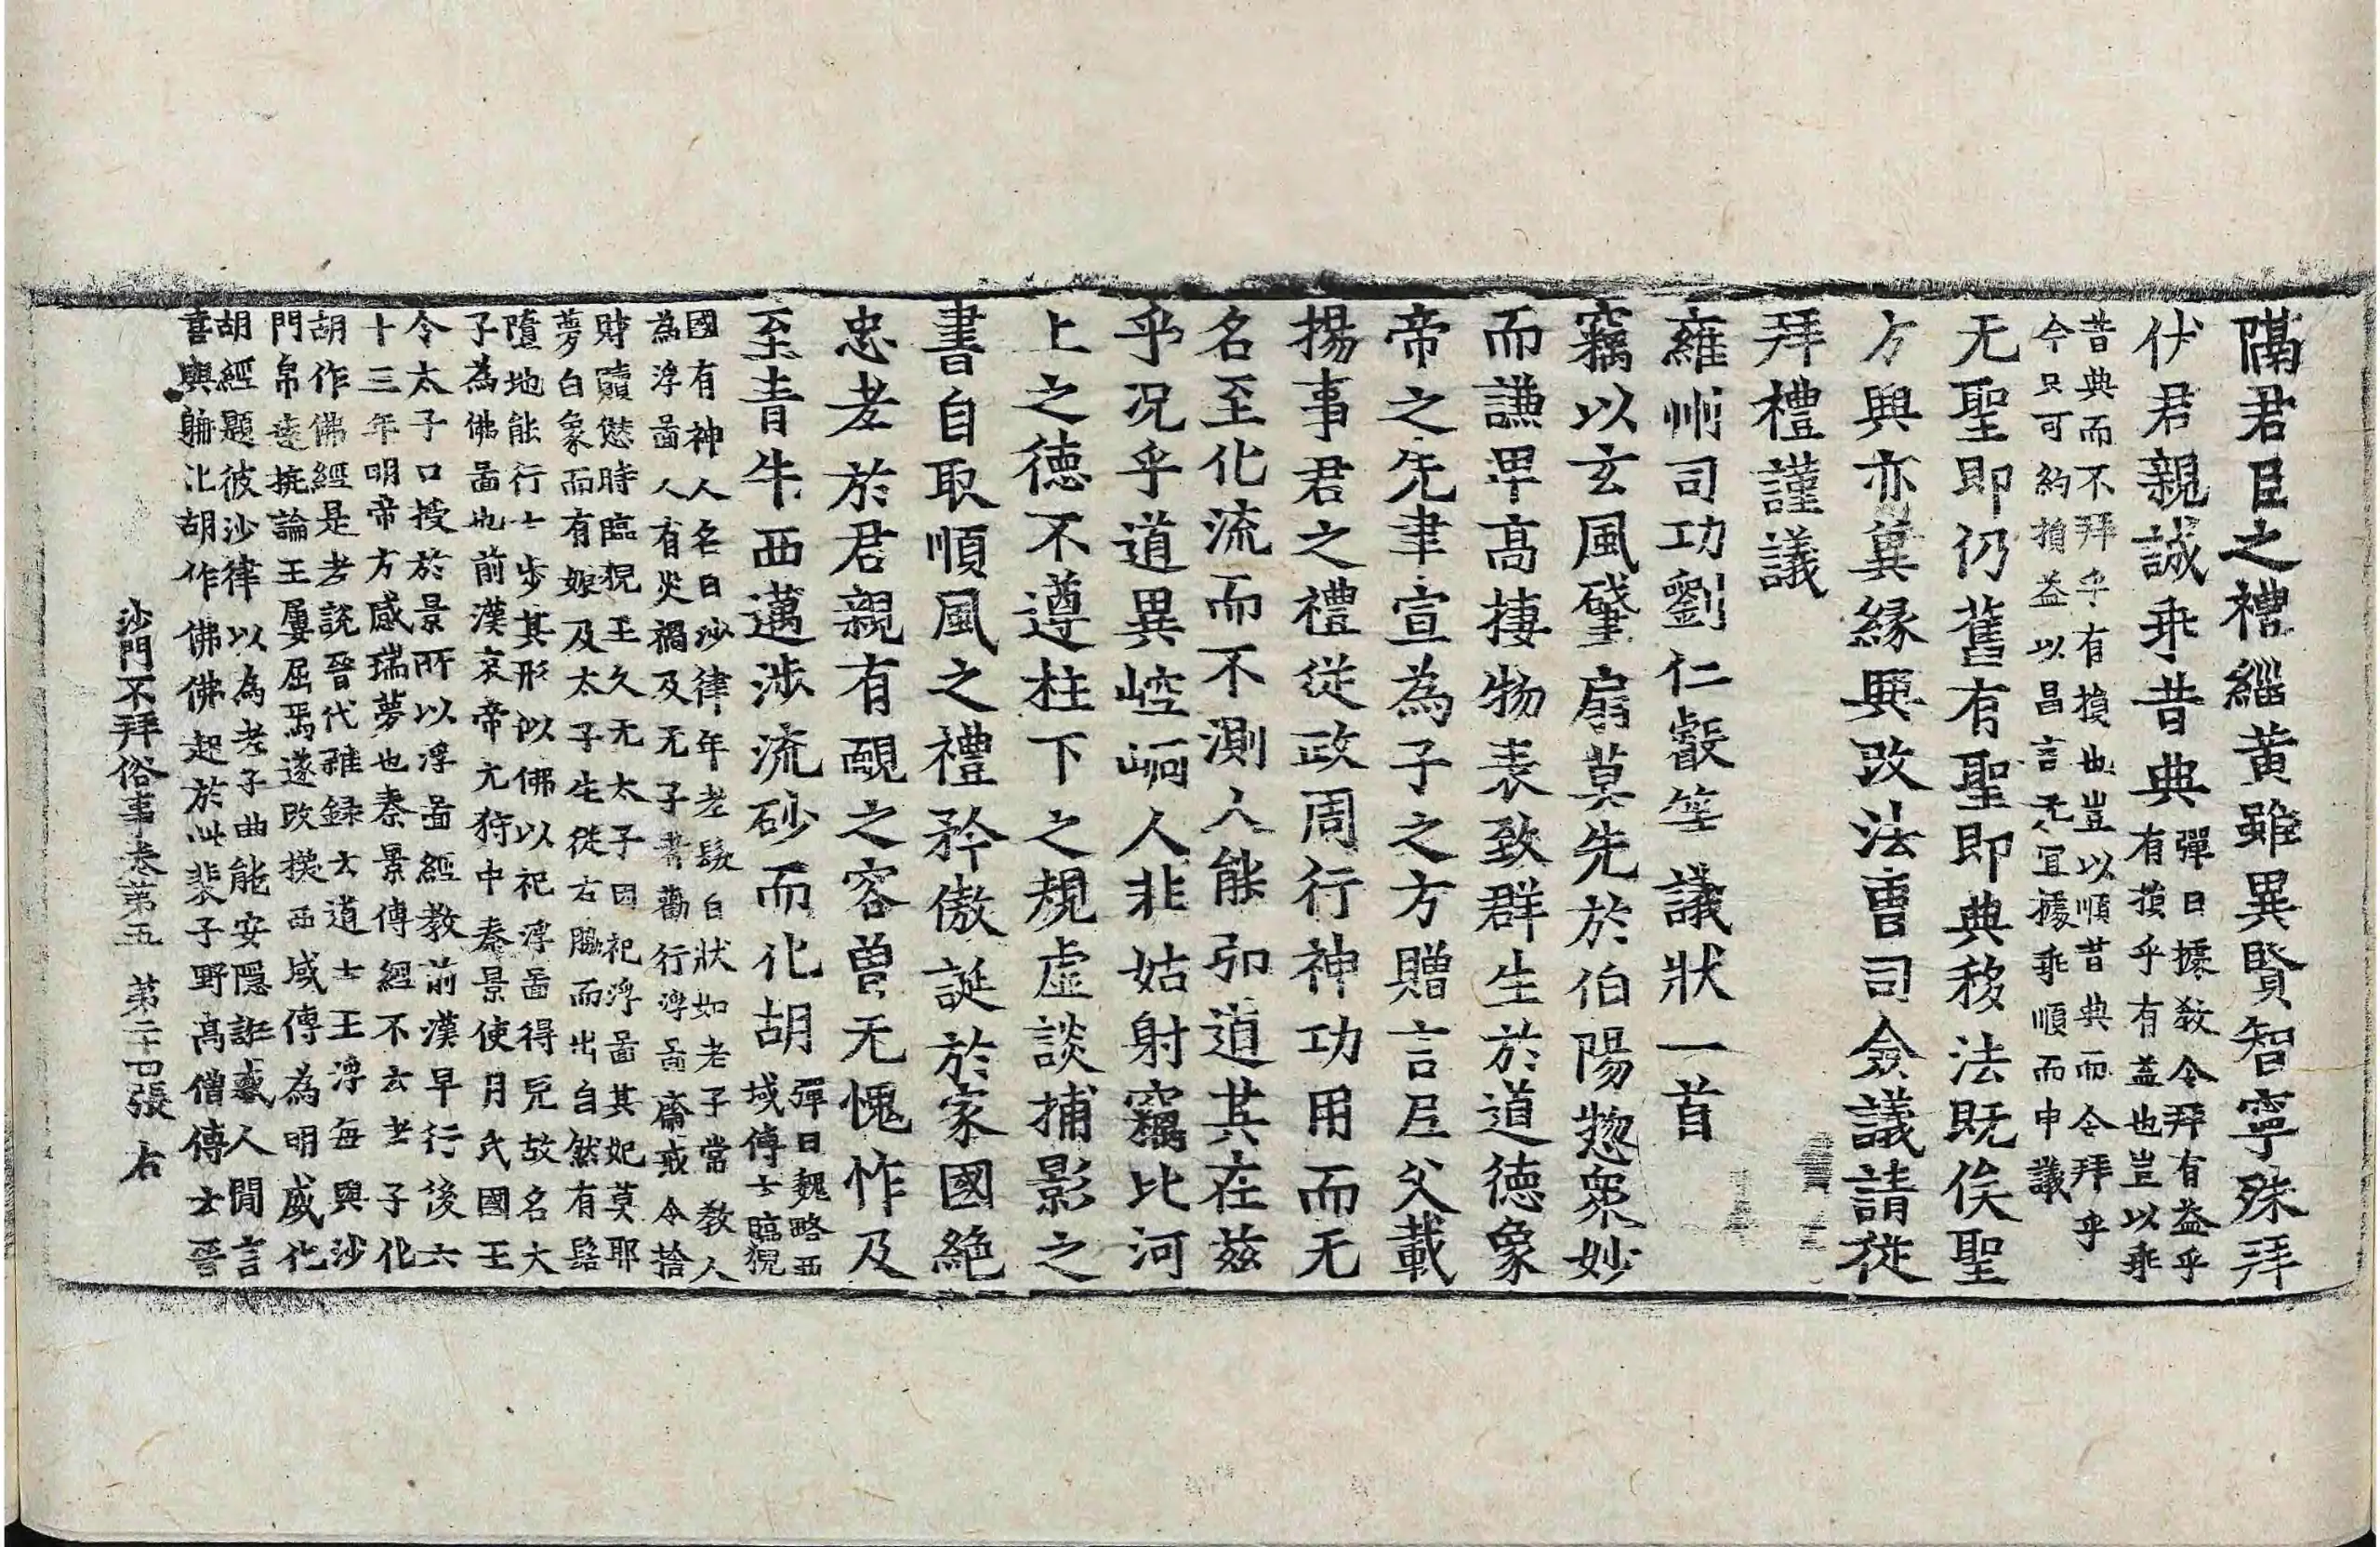 隔君臣之禮緇黃雖異賢智寧殊拜
伏君親誠乖昔典彈曰據敎令拜有益乎
有損乎有益也豈以乖
昔典而不拜乎有損也豈以順昔典而令拜乎
今只可約損益以昌言无宜據乖順而申議
无聖即仍舊有聖即典移法旣俟聖
方興亦冀緣興改法曹司僉議請從
拜禮謹議
雍州司功劉仁叡等議狀一首
竊以玄風肇扇莫先於伯陽惣衆妙
而謙卑高棲物表致群生於道德象
帝之先聿宣為子之方贈言尼父載
揚事君之禮從政周行神功用而无
名至化流而不測人能弘道其在茲
乎況乎道異崆峒人非姑射竊比河
上之德不遵柱下之規虛談捕影之
書自取順風之禮矜傲誕於家國絶
忠孝於君親有靦之容曾无愧怍及
至青牛西邁涉流砂而化胡彈曰魏略西
域傳云臨猊
國有神人名曰沙律年老髮白狀如老子常敎人
為浮啚人有災禍及无子者勸行浮啚齋戒令捨
財贖愆時臨猊王久无太子因祀浮啚其妃莫耶
夢白象而有娠及太子生從右脇而出自然有髻
墮地能行七步其形似佛以祀浮啚得兒故名大
子為佛啚也前漢哀帝元狩中秦景使月氏國王
令太子口授於景所以浮啚經敎前漢早行後六
十三年明帝方感瑞夢也秦景傳經不云老子化
胡作佛經是老說晉代雜錄云道士王浮每與沙
門帛遠抗論王屢屈焉遂改換西域傳為明威化
胡經題彼沙律以為老子曲能安隱誑惑人閒言
喜與躭化胡作佛佛起於此裴子野高僧傳云晉
沙門不拜俗事卷第五　第二十四張　右